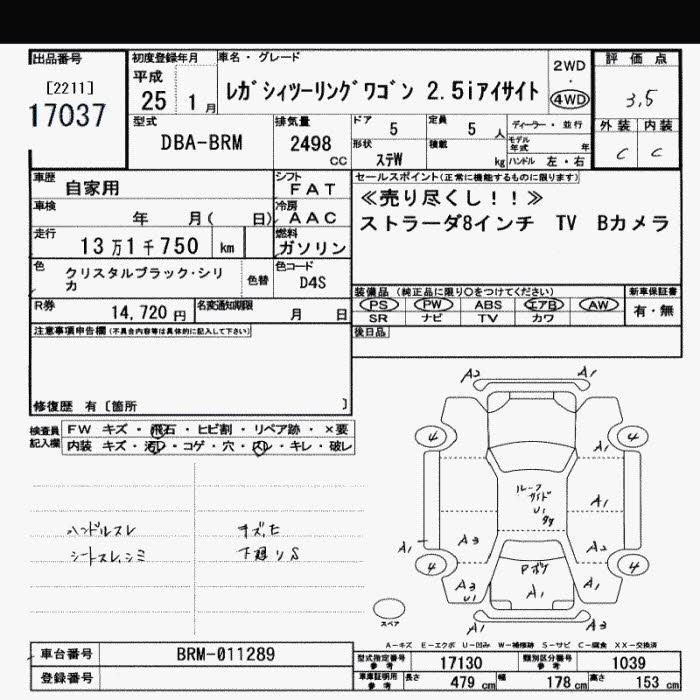 出品番号
[2211]
17037
初度登録年月
平成
25 1月
車名・グレード
レガシィツーリングワゴン 2.5iアイサイト
2WD
・
4WD
評価点
3.5
外装 内装
C C
型式
DBA-BRM
排気量
2498
CC
ドア 5
定員 5人
形状 ステW
積載 kg
ディーラー・並行
モデル年式 年
ハンドル 左・右
車歴 自家用
シフト FAT
車検 年 月( 日)
冷房 AAC
走行 13万1千750 km
燃料 ガソリン
色 クリスタルブラック・シリカ
色替
色コード D4S
R券 14,720円
名変通知期限 月 日
セールスポイント(正常に機能するものに限ります)
≪売り尽くし!!≫
ストラーダ8インチ TV Bカメラ
装備品(純正品に限り○をつけてください)
PS PW ABS エアB AW
SR ナビ TV カワ
新車保証書
有・無
後日品
注意事項申告欄(不具合内容等は具体的に記入して下さい)
修復歴 有〔箇所 〕
検査員記入欄
FW キズ・飛石・ヒビ割・リペア跡・×要
内装 キズ・汚レ・コゲ・穴・スレ・キレ・破レ
ハンドルスレ
シートスレ,シミ
下廻りS
A2 A1
4 4
A1
ルーフ
サイド
U1
A1
A1 A3 A2
4 4
A3
U1
Pボケ
A1
A1
A1 A3
スペア
A-キズ E-エクボ U-凹み W-補修跡 S-サビ C-腐食 XX-交換済
車台番号 BRM-011289
登録番号
型式指定番号 参考 17130
類別区分番号 参考 1039
車庫証明用 参考 長さ 479cm 幅 178cm 高さ 153cm